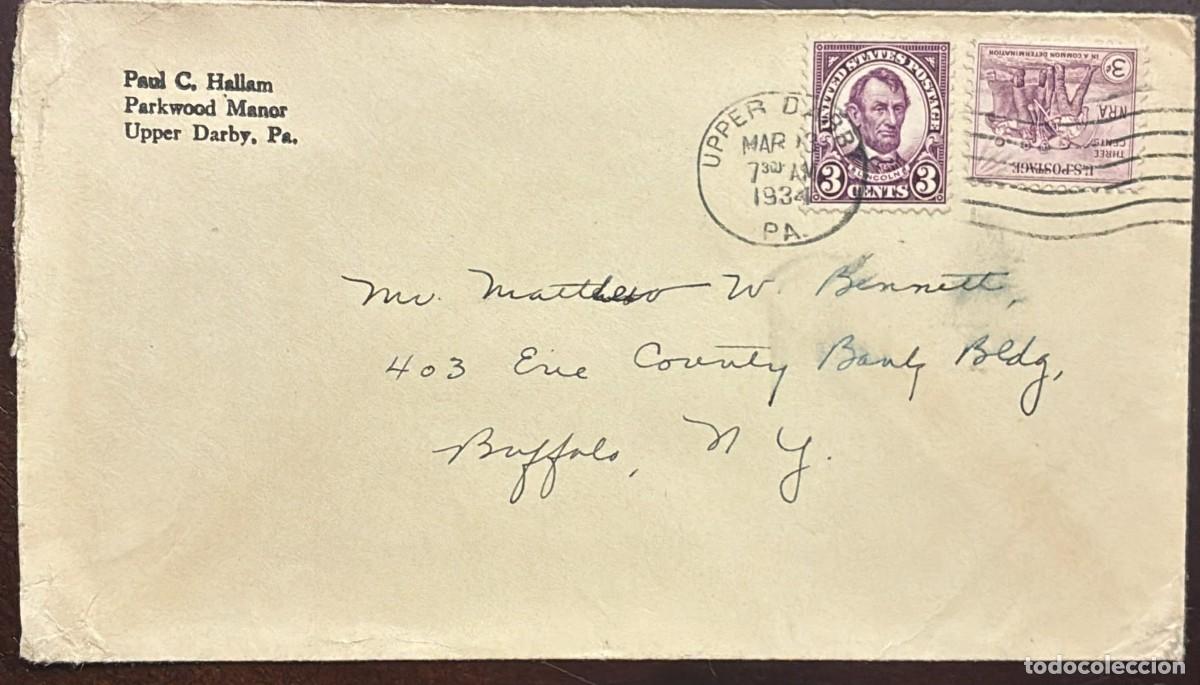 Paul C. Hallam
Parkwood Manor
Upper Darby, Pa.
UPPER DARBY
MAR
7 30 AM
1934
PA.
UNITED STATES POSTAGE
LINCOLN
3 CENTS 3
U.S. POSTAGE
THREE CENTS
NRA
3¢
IN A COMMON DETERMINATION
Mr. Matthew W. Bennett,
403 Erie County Bank Bldg,
Buffalo, N Y.
todocoleccion